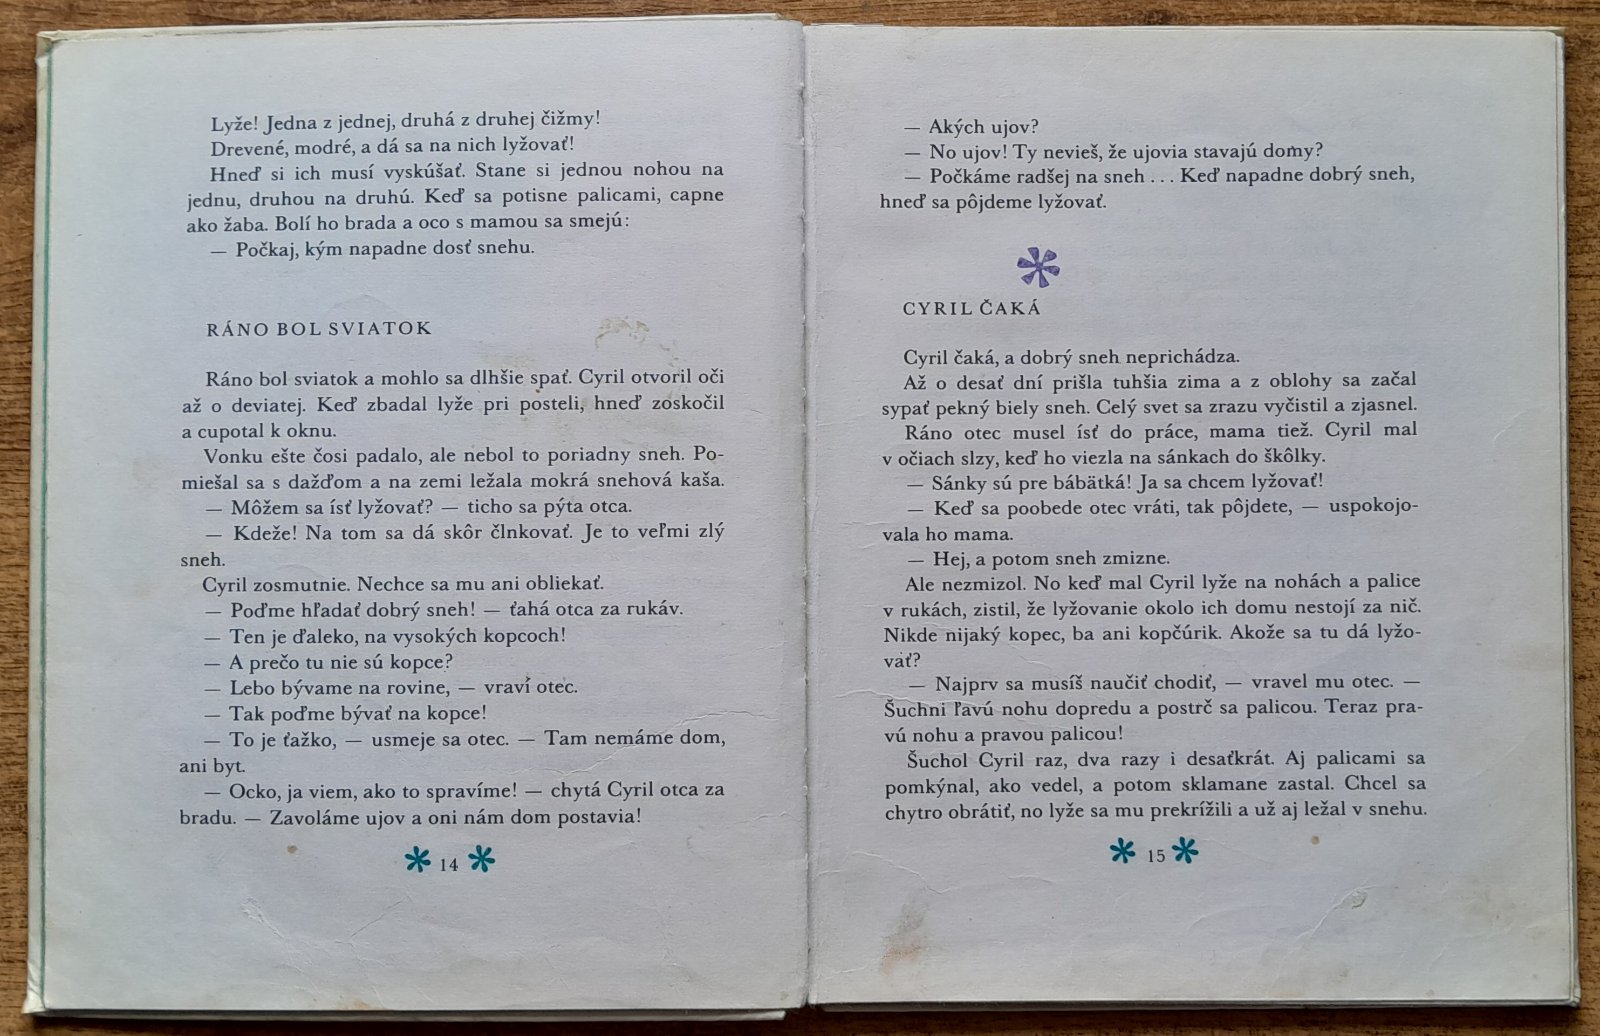 Lyže! Jedna z jednej, druhá z druhej čižmy!
Drevené, modré, a dá sa na nich lyžovať!
Hneď si ich musí vyskúšať. Stane si jednou nohou na
jednu, druhou na druhú. Keď sa potisne palicami, capne
ako žaba. Bolí ho brada a oco s mamou sa smejú:
— Počkaj, kým napadne dosť snehu.
RÁNO BOL SVIATOK
Ráno bol sviatok a mohlo sa dlhšie spať. Cyril otvoril oči
až o deviatej. Keď zbadal lyže pri posteli, hneď zoskočil
a cupotal k oknu.
Vonku ešte čosi padalo, ale nebol to poriadny sneh. Po-
miešal sa s dažďom a na zemi ležala mokrá snehová kaša.
— Môžem sa ísť lyžovať? — ticho sa pýta otca.
— Kdeže! Na tom sa dá skôr člnkovať. Je to veľmi zlý
sneh.
Cyril zosmutnie. Nechce sa mu ani obliekať.
— Poďme hľadať dobrý sneh! — ťahá otca za rukáv.
— Ten je ďaleko, na vysokých kopcoch!
— A prečo tu nie sú kopce?
— Lebo bývame na rovine, — vraví otec.
— Tak poďme bývať na kopce!
— To je ťažko, — usmeje sa otec. — Tam nemáme dom,
ani byt.
— Ocko, ja viem, ako to spravíme! — chytá Cyril otca za
bradu. — Zavoláme ujov a oni nám dom postavia!
14
— Akých ujov?
— No ujov! Ty nevieš, že ujovia stavajú domy?
— Počkáme radšej na sneh . . . Keď napadne dobrý sneh,
hneď sa pôjdeme lyžovať.
CYRIL ČAKÁ
Cyril čaká, a dobrý sneh neprichádza.
Až o desať dní prišla tuhšia zima a z oblohy sa začal
sypať pekný biely sneh. Celý svet sa zrazu vyčistil a zjasnel.
Ráno otec musel ísť do práce, mama tiež. Cyril mal
v očiach slzy, keď ho viezla na sánkach do škôlky.
— Sánky sú pre bábätká! Ja sa chcem lyžovať!
— Keď sa poobede otec vráti, tak pôjdete, — uspokojo-
vala ho mama.
— Hej, a potom sneh zmizne.
Ale nezmizol. No keď mal Cyril lyže na nohách a palice
v rukách, zistil, že lyžovanie okolo ich domu nestojí za nič.
Nikde nijaký kopec, ba ani kopčúrik. Akože sa tu dá lyžo-
vať?
— Najprv sa musíš naučiť chodiť, — vravel mu otec. —
Šuchni ľavú nohu dopredu a postrč sa palicou. Teraz pra-
vú nohu a pravou palicou!
Šuchol Cyril raz, dva razy i desaťkrát. Aj palicami sa
pomkýnal, ako vedel, a potom sklamane zastal. Chcel sa
chytro obrátiť, no lyže sa mu prekrížili a už aj ležal v snehu.
15